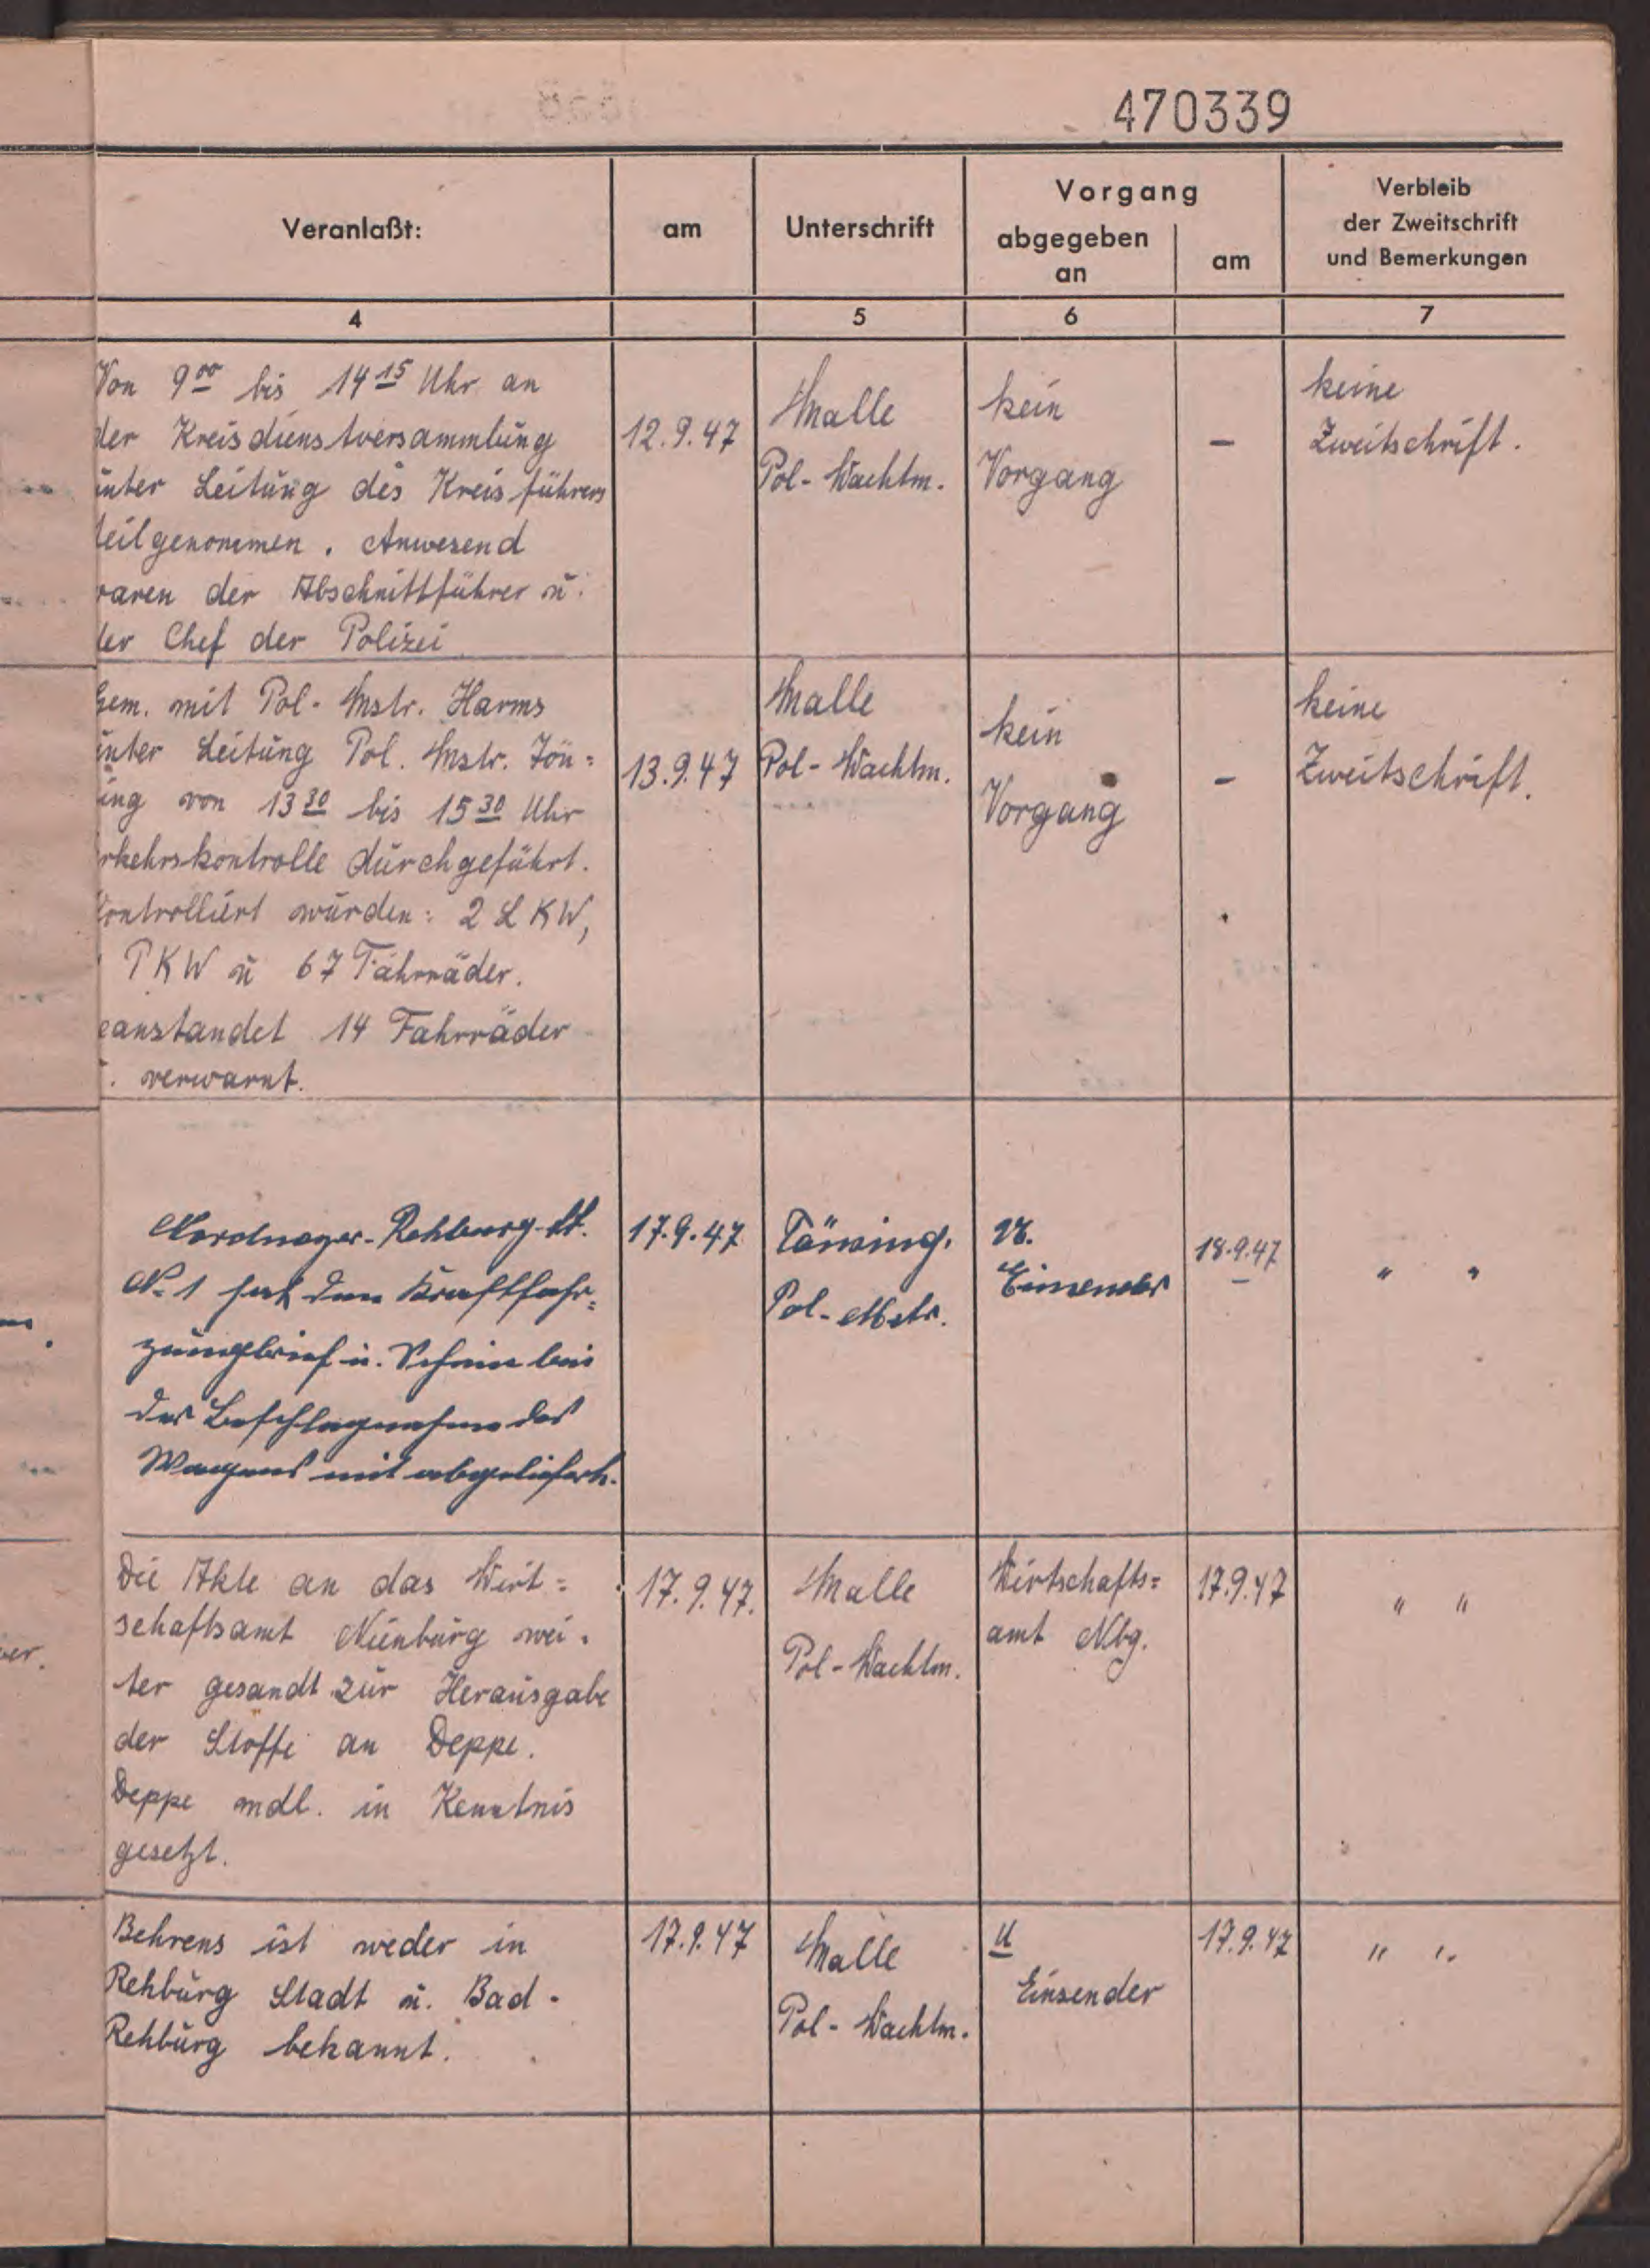 470339
Veranlaßt:
am
Unterschrift
Vorgang
abgegeben
an
am
Verbleib
der Zweitschrift
und Bemerkungen
4
5
6
7
Von 9⁰⁰ bis 14¹⁵ Uhr an
der Kreisdienstversammlung
unter Leitung des Kreisführers
teilgenommen. Anwesend
waren der Abschnittführer u.
der Chef der Polizei
12.9.47
Malle
Pol-Wachtm.
kein
Vorgang
–
keine
Zweitschrift.
Gem. mit Pol-Mstr. Harms
unter Leitung Pol. Mstr. Tön=
ing von 13³⁰ bis 15³⁰ Uhr
rkehrskontrolle durchgeführt.
Kontrolliert wurden: 2 LKW,
PKW u 67 Fahrräder.
eanstandet 14 Fahrräder
. verwarnt.
13.9.47
Malle
Pol-Wachtm.
kein
Vorgang
–
keine
Zweitschrift.
Rehburg-St.
N. 1 hat den Kraftfahr=
zeugbrief u. Schein bei
der Beschlagnahme des
Wagens mit abgeliefert.
17.9.47
Tönning.
Pol-Mstr.
Einsender
18.9.47
" "
Die Akte an das Wirt=
schaftsamt Nienburg wei.
ter gesandt zur Herausgabe
der Stoffe an Deppe.
Deppe mdl. in Kenntnis
gesetzt.
17.9.47.
Malle
Pol-Wachtm.
Wirtschafts=
amt Nbg.
17.9.47
" "
Behrens ist weder in
Rehburg Stadt u. Bad-
Rehburg bekannt.
17.9.47
Malle
Pol-Wachtm.
U
Einsender
17.9.47
" "